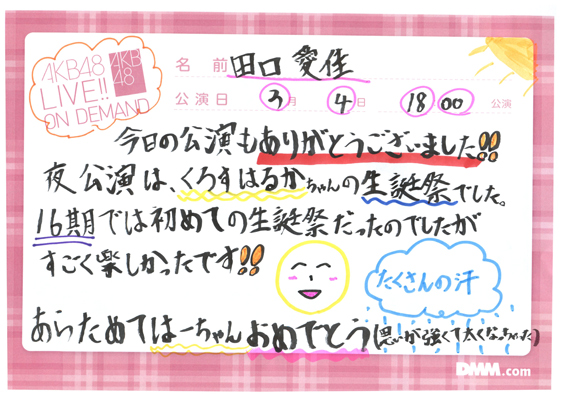 AKB48
LIVE!!
ON DEMAND
AKB
48
名前 田口 愛佳
公演日 3月 4日 18:00 公演
今日の公演もありがとうございました!!
夜公演は、くろすはるかちゃんの生誕祭でした。
16期では初めての生誕祭だったのでしたが
すごく楽しかったです!!
たくさんの汗
あらためてはーちゃんおめでとう(思いが強くて太くなっちゃった)
DMM.com